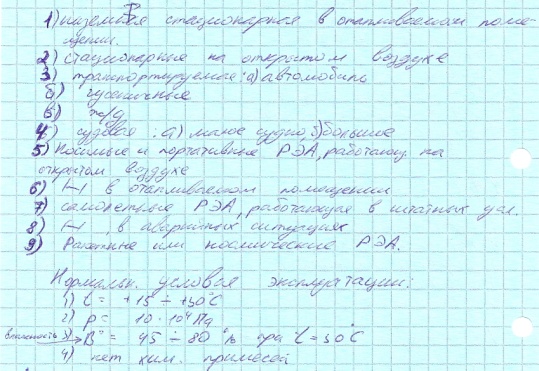 1) наземная стационарная в отапливаемом поме-
щении.
2) Стационарные на открытом воздухе
3) транспортируемые: а) автомобили
б) гусеничные
в) ж/д
4) судовая: а) малое судно, б) большие
5) Носимые и портативные РЭА, работающ. на
открытом воздухе
6) –//– в отапливаемом помещении
7) самолетные РЭА, работающая в штатных усл.
8) –//–, в аварийных ситуациях
9) Ракетные или космические РЭА.
Нормальн. условия эксплуатации:
1) t = +15 ÷ +30°C
2) p = 10·10⁴ Па
влажность 3) "В" = 45 ÷ 80 % при t = 30°C
4) нет хим. примесей